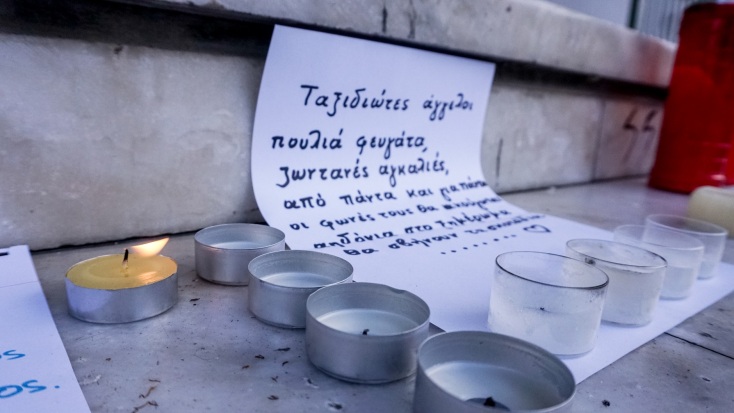 Ταξιδιώτες άγγελοι
πουλιά φευγάτα,
ζωντανές αγκαλιές,
από πάντα και για πάντα
οι φωνές τους θα
αηδόνια στο ξημέρωμα
θα σβήνουν τη